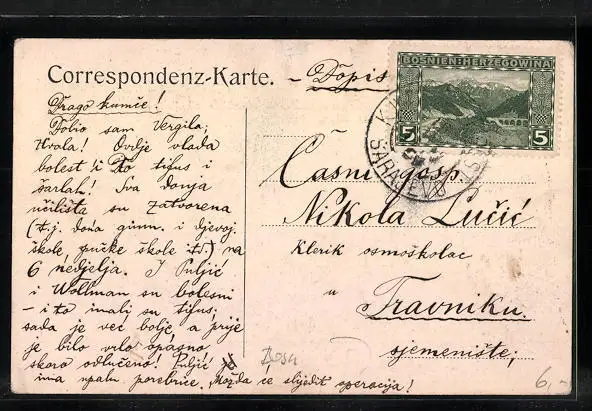 Correspondenz-Karte. – Dopis
BOSNIEN-HERZEGOWINA
5 5
SARAJEVO
Drago kumče!
Dobio sam Vergila;
Hvala! Ovdje vlada
bolest i to tifus i
šarlah! Sva donja
učilišta su zatvorena
(t.j. dona gimn. i djevoj.
škole, pučke škole itd.) na
6 nedjelja. I Puljić
i Wollman su bolesni
– i to imali su tifus;
sada je već bolje, a prije
je bilo vrlo opasno
skoro odlučeno! Puljić je
ima upalu porebrice. Možda će slijedit operacija!
Časni gosp.
Nikola Lučić
Klerik osmoškolac
u
Travniku.
sjemenište;
Bosn
6,-